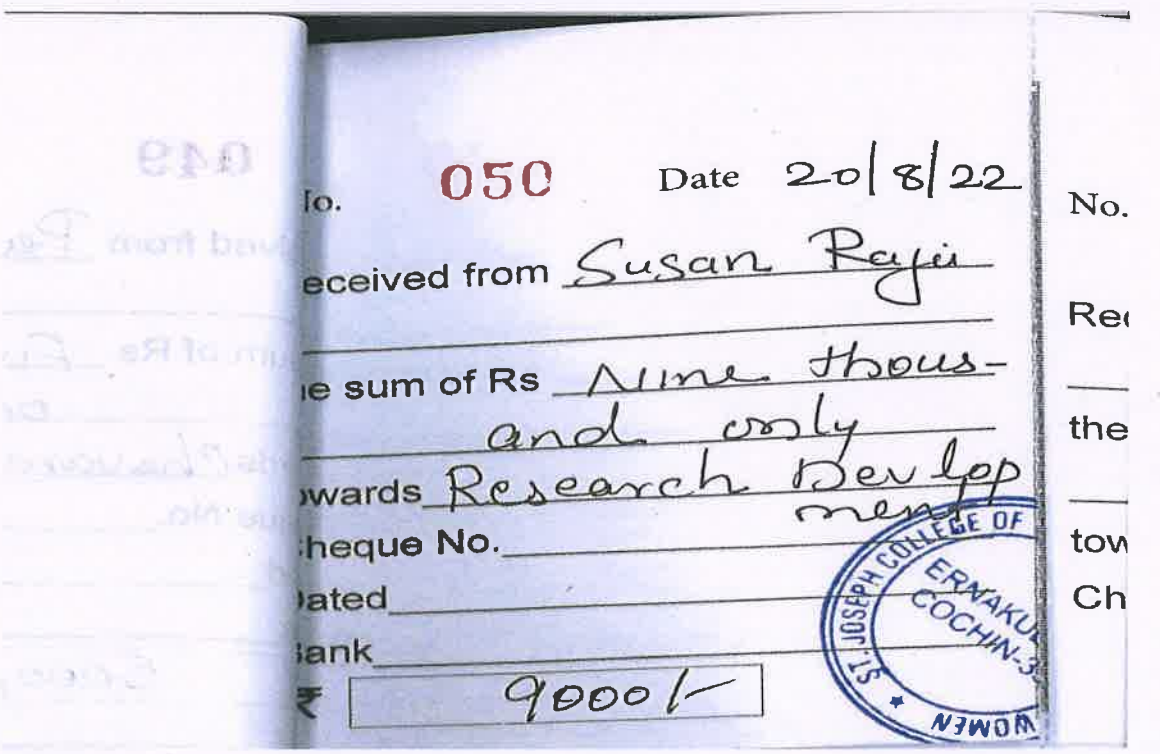 No. 050 Date 20/8/22
eceived from Susan Raju
e sum of Rs Nine thous-
and only
owards Research Devlop
ment
heque No.
ated
ank
₹ 9000/-
ST. JOSEPH COLLEGE OF
WOMEN
ERNAKU
COCHIN-3
No.
Re
the
tow
Ch
049
from
um of Rs